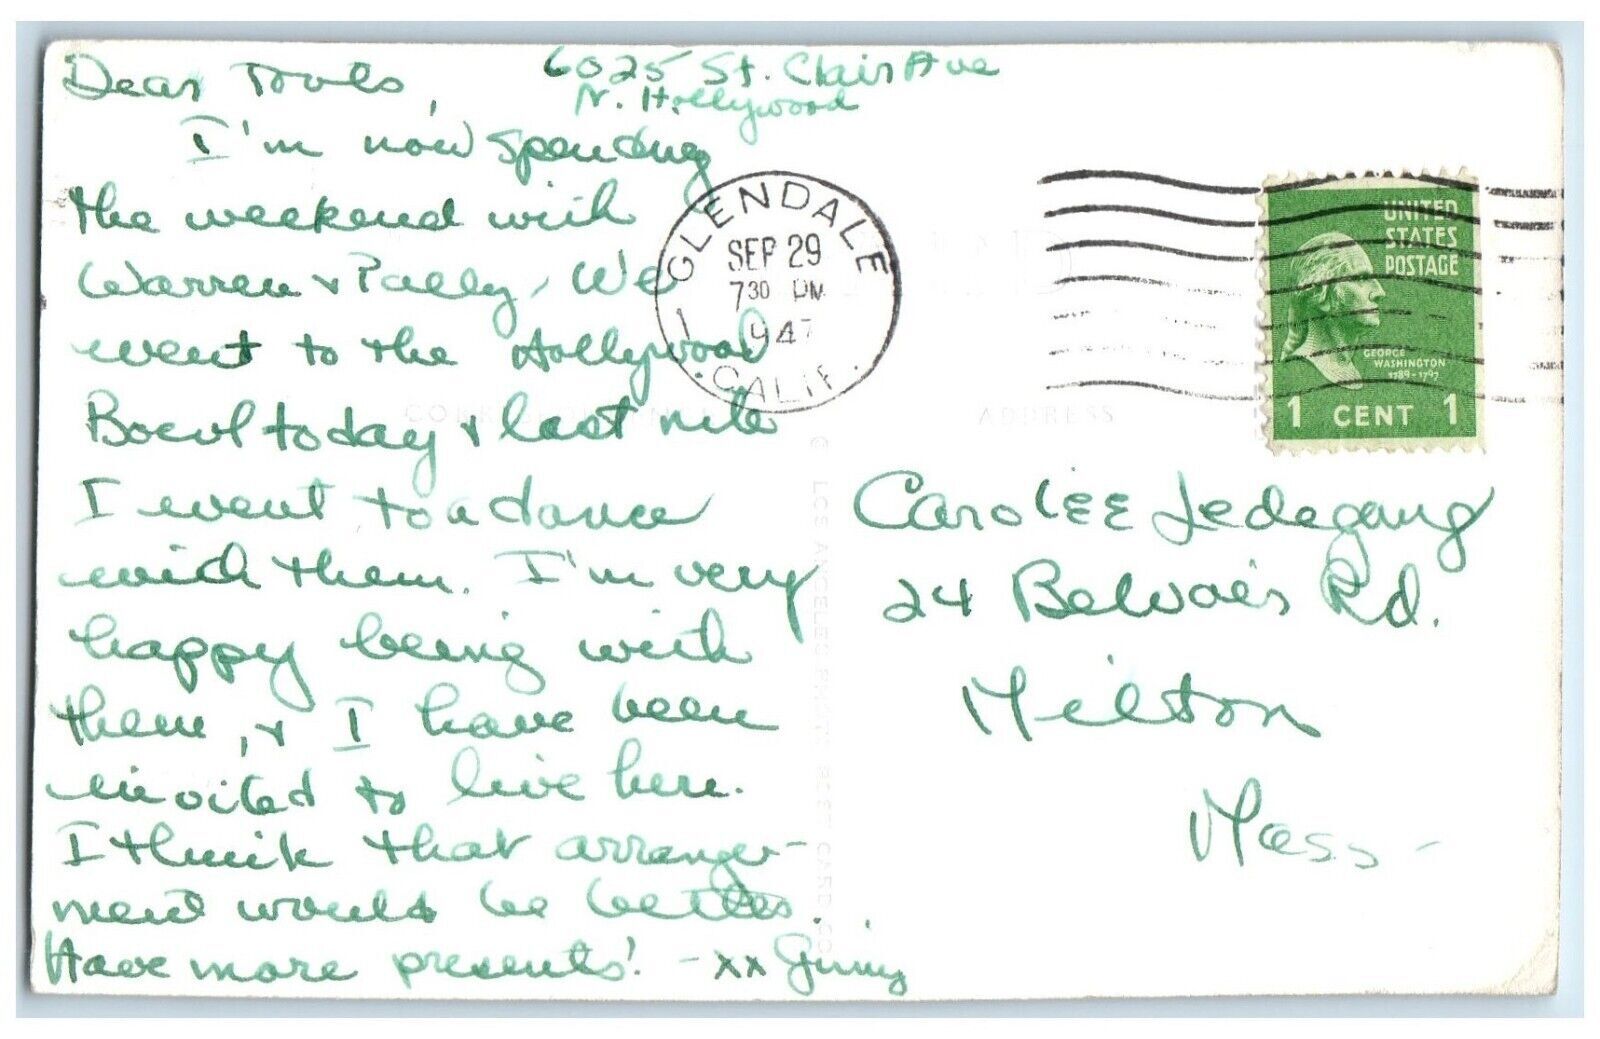 6025 St. Clair Ave
N. Hollywood
Dear Toots,
I'm now spending
the weekend with
Warren & Pally. We
went to the Hollywood
Bowl today & last nite
I went to a dance
with them. I'm very
happy being with
them, & I have been
invited to live here.
I think that arrange-
ment would be better.
Have more presents! - xx Ginny
GLENDALE
SEP 29
7 30 PM
1947
CALIF.
UNITED
STATES
POSTAGE
GEORGE
WASHINGTON
1789-1797
1 CENT 1
CORRESPONDENCE
ADDRESS
© LOS ANGELES PHOTO POST CARD CO.
CarolEE
24 Rd.
Milton
Mass-